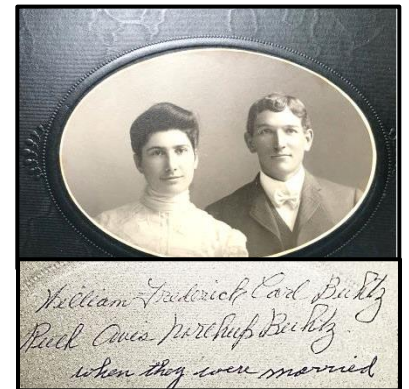 William Frederick Carl Buhtz
Ruth Avis Northup Buhtz
when they were married